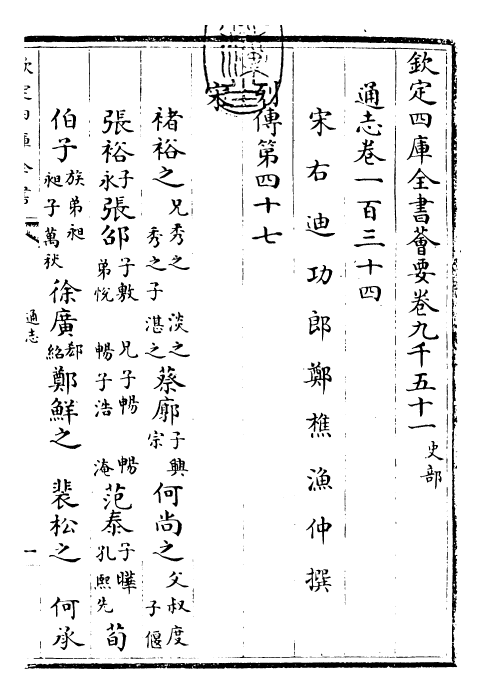 欽定四庫全書薈要卷九千五十一 史部
通志卷一百三十四
宋右迪功郎鄭樵漁仲撰
列傳第四十七
宋
褚裕之 兄秀之 淡之 秀之子 湛之 蔡廓 子興宗 何尚之 父叔度 子偃
張裕 子永 張邵 子敷 兄子暢 暢弟悅 暢子浩 淹 范泰 子曄 孔熙先 荀
伯子 族弟昶 昶子萬秋 徐廣 郗紹 鄭鮮之 裴松之 何承
欽定四庫全書
通志
一